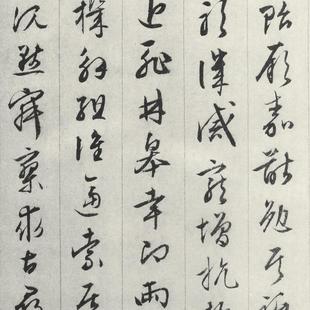 貽厥嘉猷勉其祗
躬譏誡寵增抗極
近恥林皋幸即兩
機解組誰逼索居
沉默寂寥求古尋